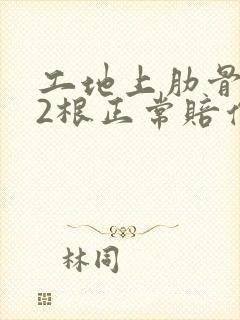 工地上肋骨
2根正常赔
林同